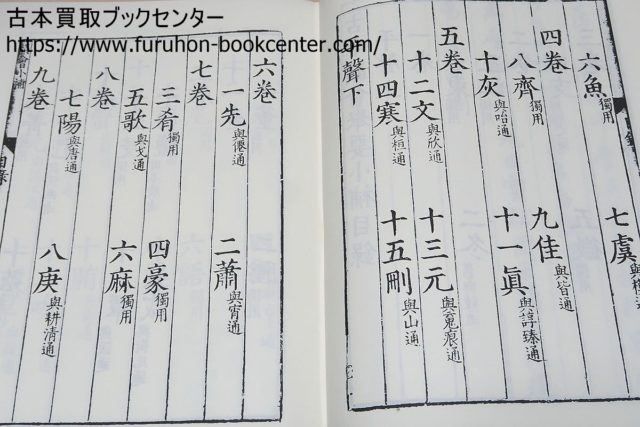 古本買取ブックセンター
https://www.furuhon-bookcenter.com/
六魚獨用 七虞
四卷
八齊獨用 九佳與皆通
十灰與咍通 十一眞與諄臻通
五卷
十二文與欣通 十三元與魂痕通
十四寒與桓通 十五刪與山通
平聲下
六卷
一先與僊通 二蕭與宵通
七卷
三肴獨用 四豪獨用
五歌與戈通 六麻獨用
八卷
七陽與唐通 八庚與耕清通
九卷
目錄